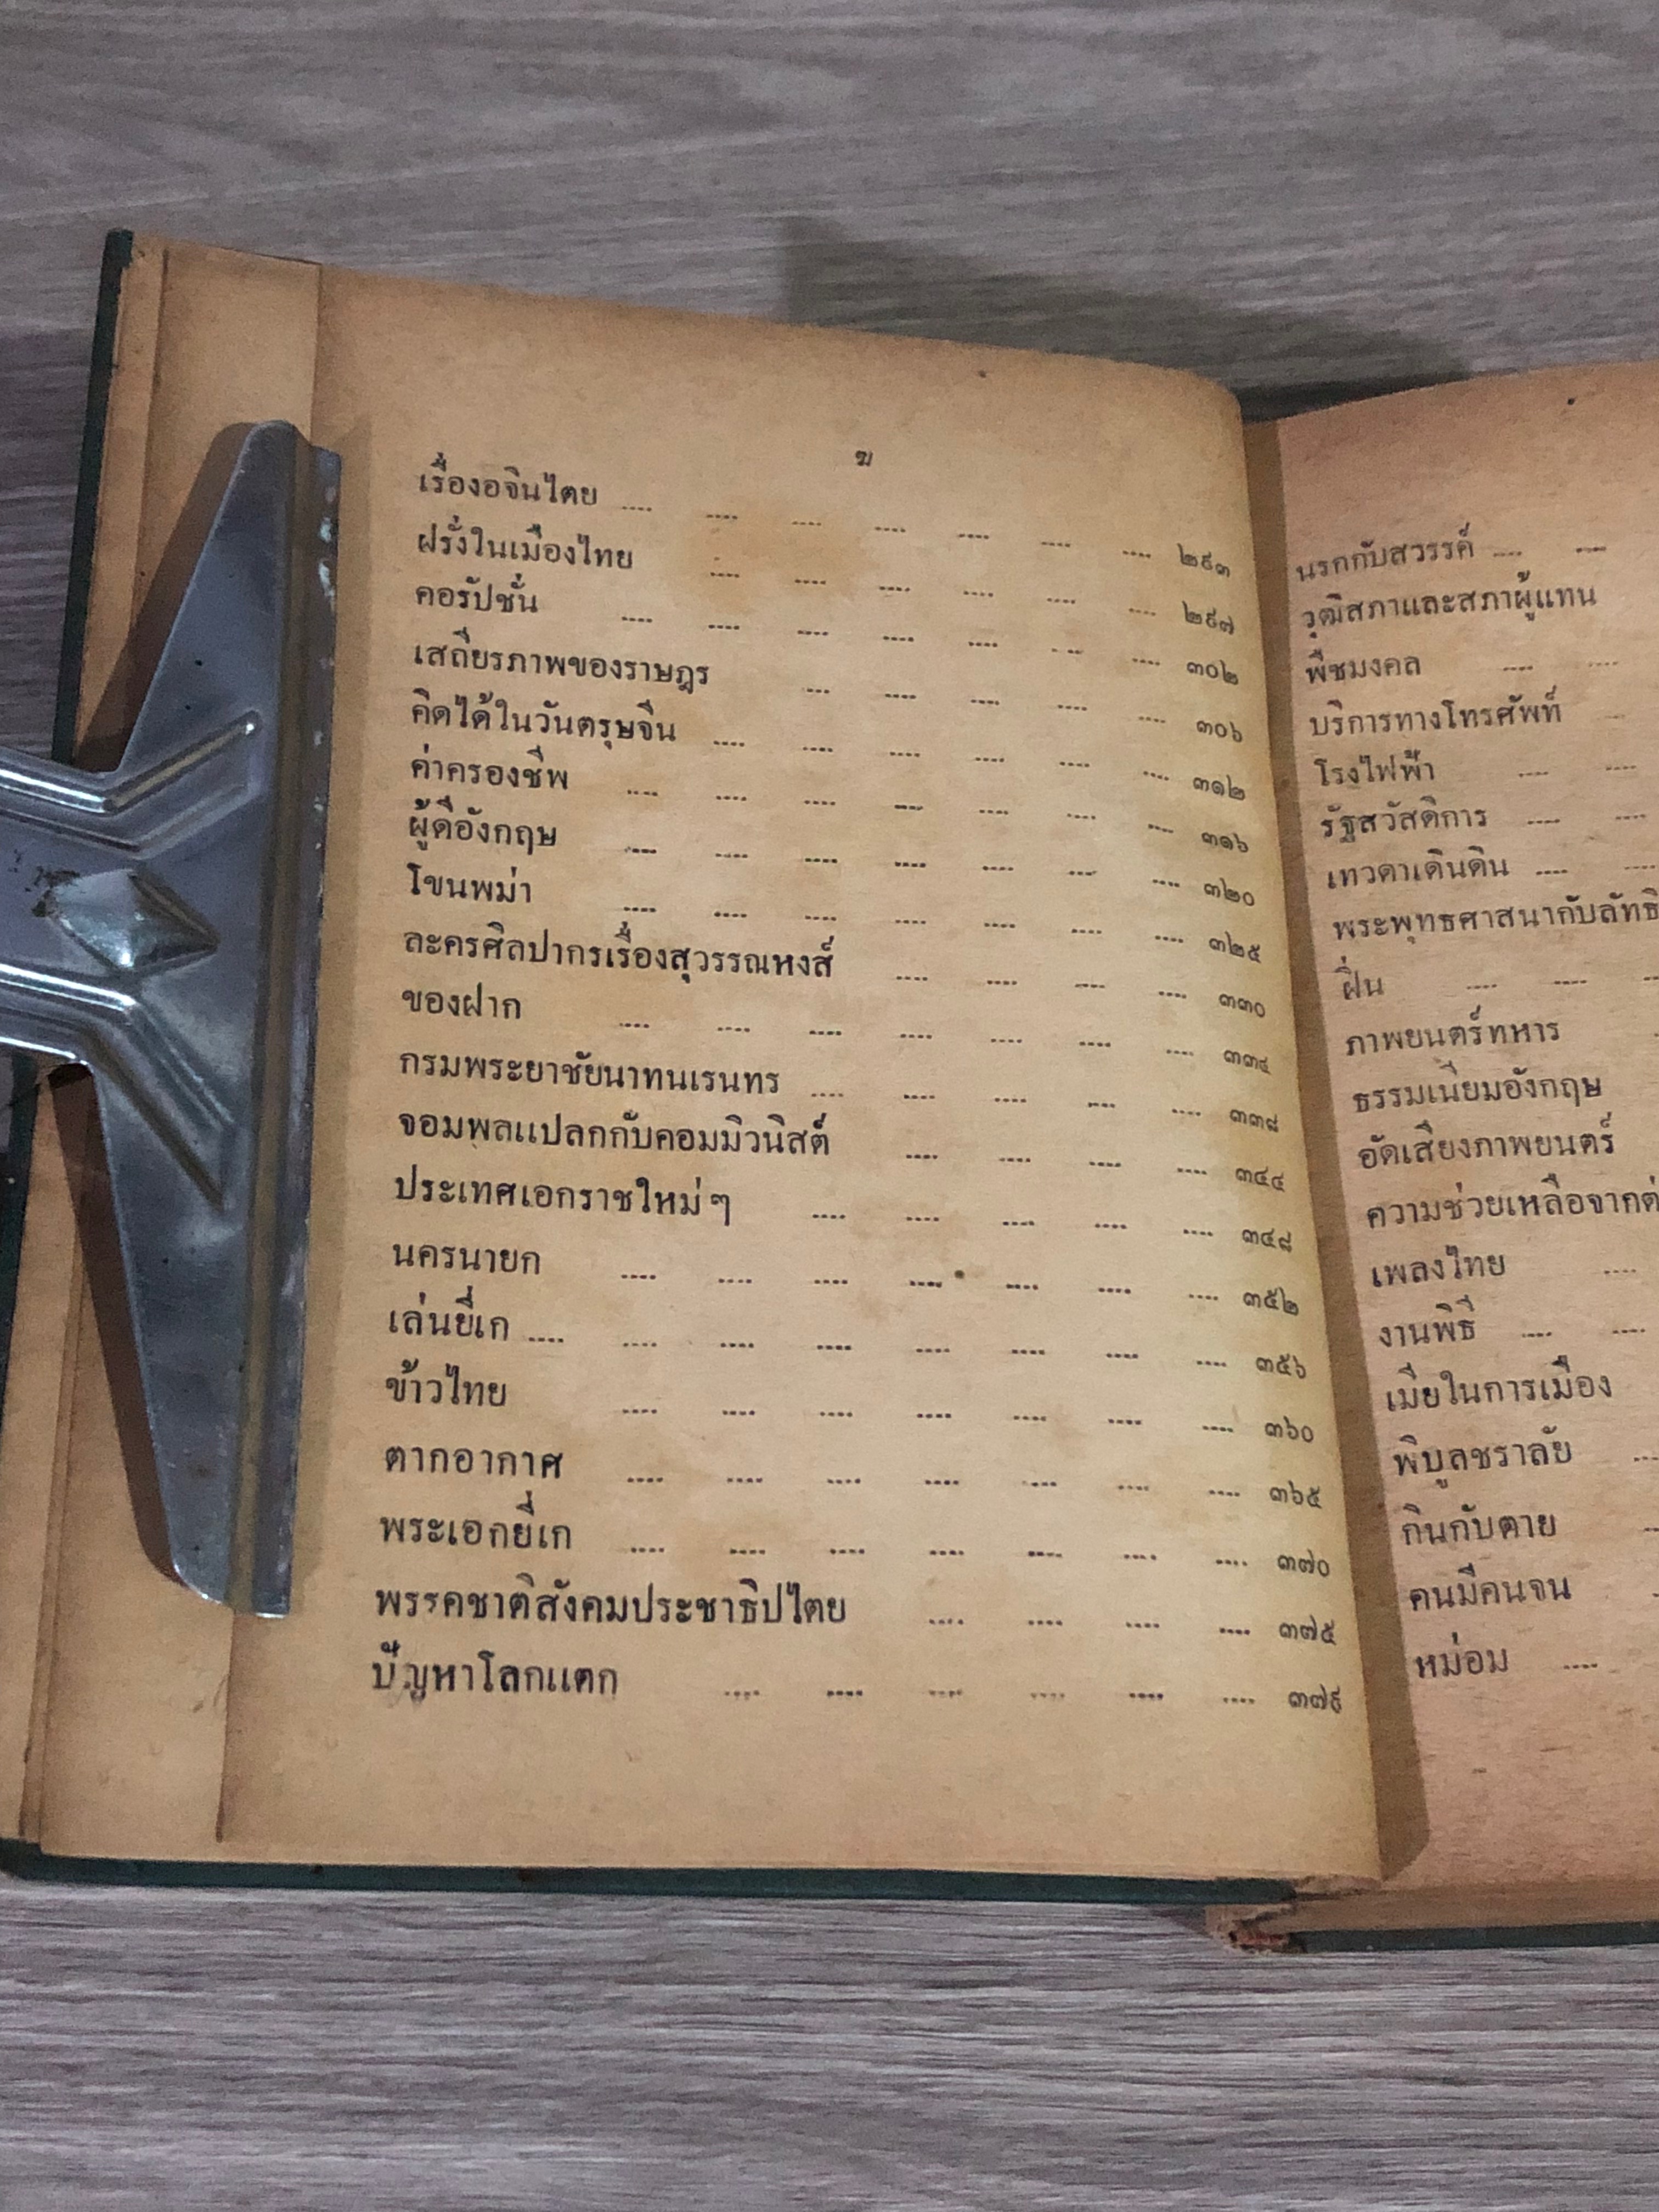 ฆ
เรื่องอจินไตย .... .... .... .... .... .... .... ๒๙๓
ฝรั่งในเมืองไทย .... .... .... .... .... .... ๒๙๗
คอรัปชั่น .... .... .... .... .... .... .... ๓๐๒
เสถียรภาพของราษฎร .... .... .... .... .... ๓๐๖
คิดได้ในวันตรุษจีน .... .... .... .... .... .... ๓๑๒
ค่าครองชีพ .... .... .... .... .... .... .... ๓๑๖
ผู้ดีอังกฤษ .... .... .... .... .... .... .... ๓๒๐
โขนพม่า .... .... .... .... .... .... .... ๓๒๕
ละครศิลปากรเรื่องสุวรรณหงส์ .... .... .... .... ๓๓๐
ของฝาก .... .... .... .... .... .... .... ๓๓๔
กรมพระยาชัยนาทนเรนทร .... .... .... .... .... ๓๓๘
จอมพลแปลกกับคอมมิวนิสต์ .... .... .... .... ๓๔๔
ประเทศเอกราชใหม่ ๆ .... .... .... .... .... ๓๔๘
นครนายก .... .... .... .... .... .... .... ๓๕๒
เล่นยี่เก .... .... .... .... .... .... .... .... ๓๕๖
ข้าวไทย .... .... .... .... .... .... .... ๓๖๐
ตากอากาศ .... .... .... .... .... .... .... ๓๖๕
พระเอกยี่เก .... .... .... .... .... .... .... ๓๗๐
พรรคชาติสังคมประชาธิปไตย .... .... .... .... ๓๗๕
ปัญหาโลกแตก .... .... .... .... .... .... ๓๗๙
นรกกับสวรรค์ .... ....
วุฒิสภาและสภาผู้แทน
พืชมงคล .... ....
บริการทางโทรศัพท์ ....
โรงไฟฟ้า .... ....
รัฐสวัสดิการ .... ....
เทวดาเดินดิน .... ....
พระพุทธศาสนากับลัทธิ
ฝิ่น .... .... ....
ภาพยนตร์ทหาร
ธรรมเนียมอังกฤษ
อัดเสียงภาพยนตร์
ความช่วยเหลือจากต่
เพลงไทย ....
งานพิธี .... ....
เมียในการเมือง
พิบูลชราลัย ....
กินกับตาย ....
คนมีคนจน
หม่อม ....